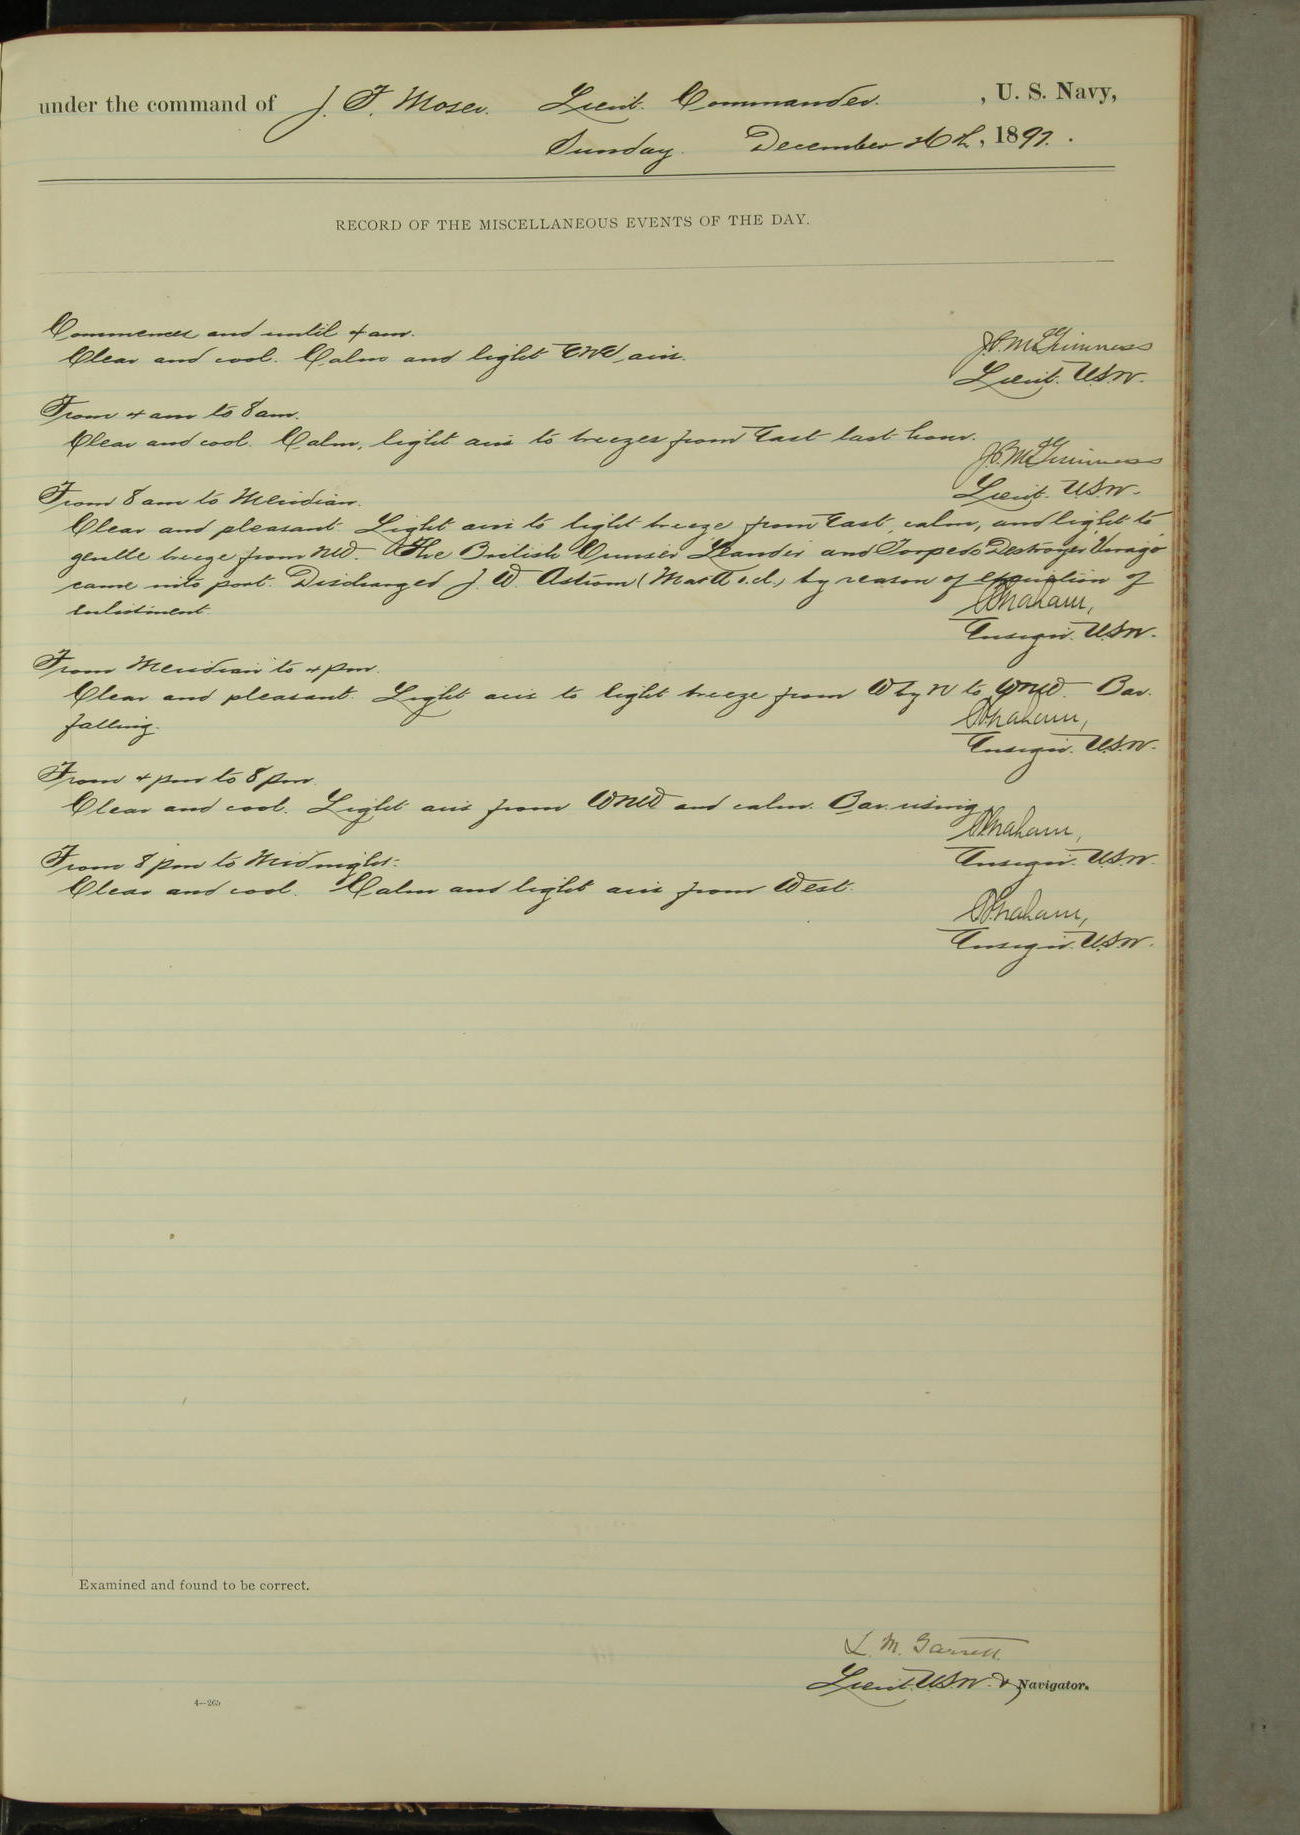 under the command of J. F. Moser. Lieut. Commander. , U. S. Navy,
Sunday. December 26th, 1897.
RECORD OF THE MISCELLANEOUS EVENTS OF THE DAY.
Commences and until 4 am.
Clear and cool. Calm and light ENE airs.
J.P. McGuinness
Lieut. U.S.N.
From 4 am to 8 am.
Clear and cool. Calm, light airs to breezes from East last hour.
J.P. McGuinness
Lieut. U.S.N.
From 8 am to Meridian.
Clear and pleasant. Light airs to light breeze from East, calm, and light to
gentle breeze from NW. The British Cruiser Leander and Torpedo Destroyer Virago
came into port. Discharged J. W. Astrom (Matt 1.cl.) by reason of expiration of
enlistment.
Graham,
Ensign. U.S.N.
From Meridian to 4 pm.
Clear and pleasant. Light airs to light breeze from W by N to WNW. Bar.
falling.
Graham,
Ensign. U.S.N.
From 4 pm to 8 pm.
Clear and cool. Light airs from WNW and calm. Bar. rising.
Graham,
Ensign. U.S.N.
From 8 pm to Midnight.
Clear and cool. Calm and light airs from West.
Graham,
Ensign. U.S.N.
Examined and found to be correct.
L. M. Garrett.
Lieut. U.S.N. & Navigator.
4—265